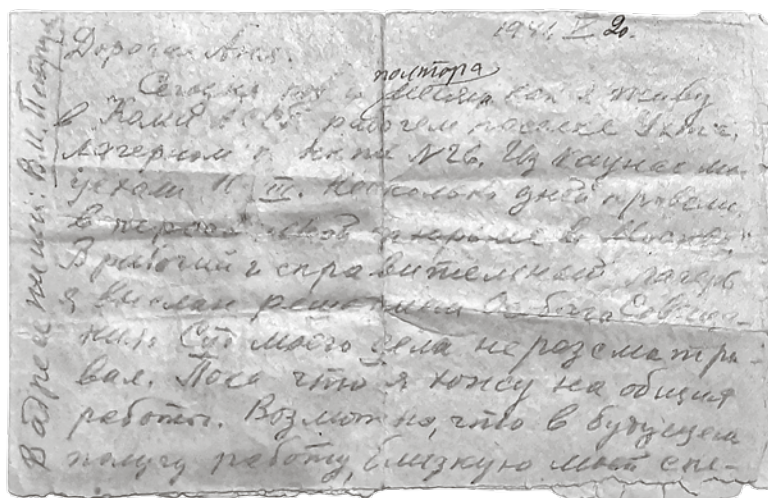 1941. V 20.
Дорогая Аня.
Сегодня полтора месяца как я живу
в Коми АССР рабочем поселке Ухта,
лагерном пункте №26. Из Каунаса мы
уехали 11 III. Несколько дней провели
в пересыльной тюрьме в Москве.
В рабочий исправительный лагерь
я выслан решением Особого Совеща-
ния. Суд моего дела не розсматри-
вал. Пока что я хожу на общия
работы. Возможно, что в будущем
получу работу, близкую моей спе-
В адресе пиши: В.И.